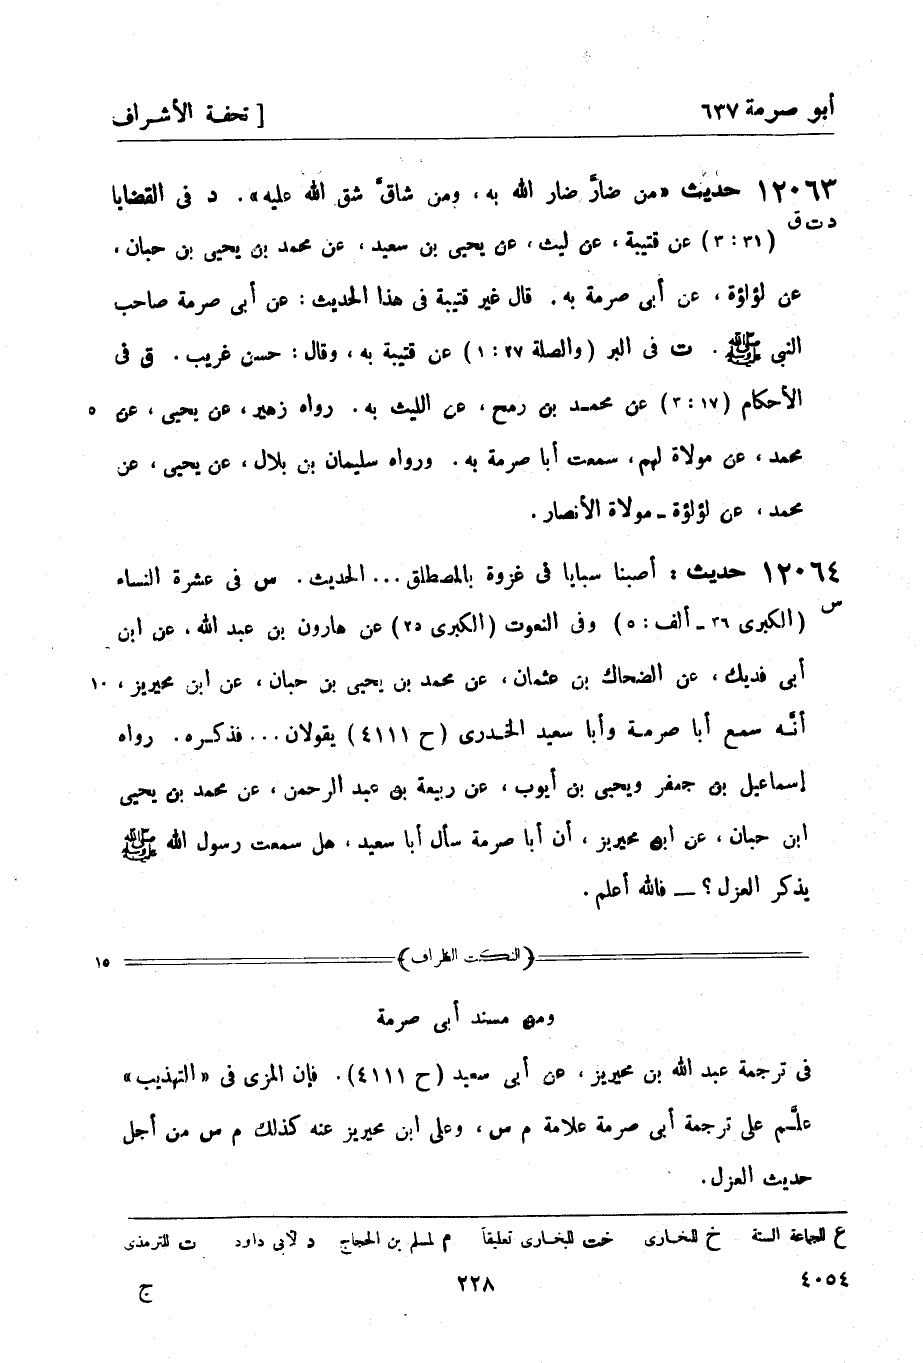 أبو صرمة ٦٣٧ [ تحفة الأشراف
١٢٠٦٣ حديث «من ضارَّ ضار الله به ، ومن شاقَّ شق الله عليه» . د فى القضايا
د ت ق
(٣١ : ٣) عن قتيبة ، عن ليث ، عن يحيى بن سعيد ، عن محمد بن يحيى بن حبان ،
عن لؤلؤة ، عن أبى صرمة به . قال غير قتيبة فى هذا الحديث : عن أبى صرمة صاحب
النبي ﷺ . ت فى البر (والصلة ٢٧ : ١) عن قتيبة به ، وقال : حسن غريب . ق فى
الأحكام (١٧ : ٢) عن محمد بن رمح ، عن الليث به . رواه زهير ، عن يحيى ، عن ٥
محمد ، عن مولاة لهم ، سمعت أبا صرمة به . ورواه سليمان بن بلال ، عن يحيى ، عن
محمد ، عن لؤلؤة ـ مولاة الأنصار .
١٢٠٦٤ حديث : أصبنا سبايا فى غزوة بالمصطلق ... الحديث . س فى عشرة النساء
س
(الكبرى ٣٦ ـ ألف : ٥) وفى النعوت (الكبرى ٢٥) عن هارون بن عبد الله ، عن ابن
أبى فديك ، عن الضحاك بن عثمان ، عن محمد بن يحيى بن حبان ، عن ابن محيريز ، ١٠
أنَّه سمع أبا صرمة وأبا سعيد الخدرى (ح ٤١١١) يقولان ... فذكره . رواه
إسماعيل بن جعفر ويحيى بن أيوب ، عن ربيعة بن عبد الرحمن ، عن محمد بن يحيى
ابن حبان ، عن ابن محيريز ، أن أبا صرمة سأل أبا سعيد ، هل سمعت رسول الله ﷺ
يذكر العزل ؟ ـ فالله أعلم .
(النكت الظراف) ١٥
ومن مسند أبى صرمة
فى ترجمة عبد الله بن محيريز ، عن أبى سعيد (ح ٤١١١) . فإن المزى فى «التهذيب»
علَّم على ترجمة أبى صرمة علامة م س ، وعلى ابن محيريز عنه كذلك م س من أجل
حديث العزل .
ع للجماعة الستة خ للبخارى خت للبخارى تعليقاً م لمسلم بن الحجاج د لأبى داود ت للترمذى
٤٠٥٤ ٢٢٨ ج